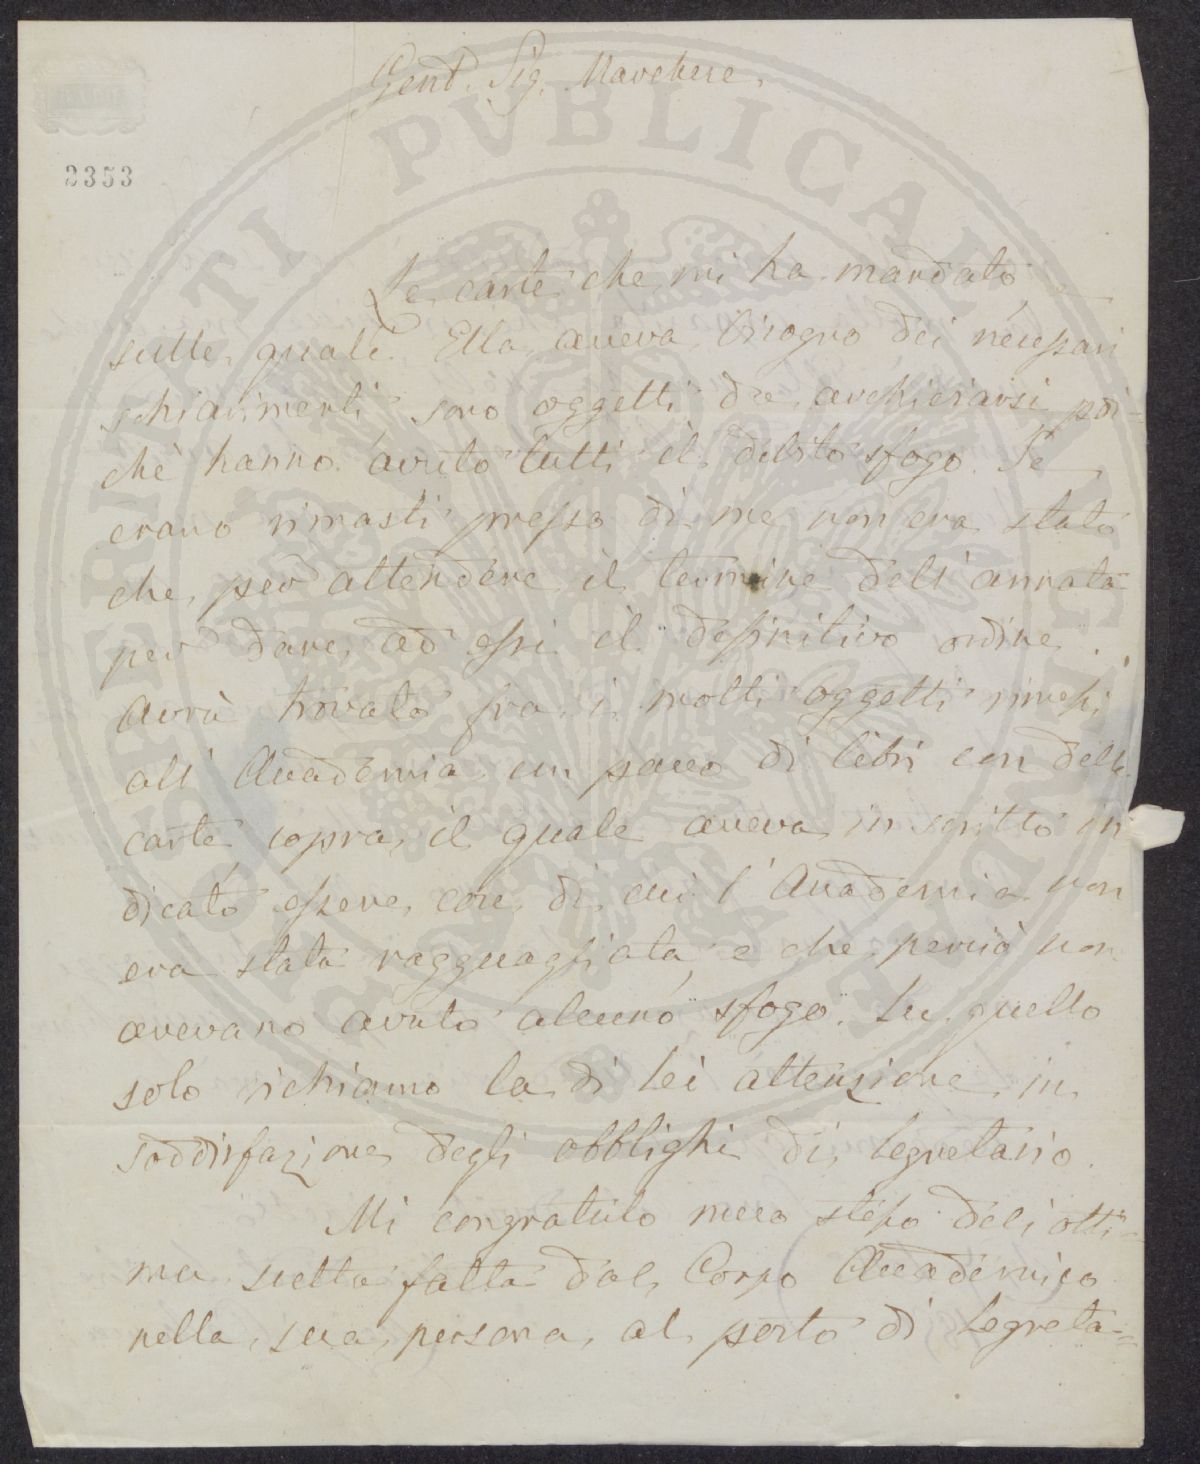 Gent. Sig. Marchese.
2353
Le carte che mi ha mandato e
sulle quali Ella aveva bisogno dei necessari
schiarimenti sono oggetti da archiviarsi poi-
chè hanno avuto tutti il debito sfogo. Se
erano rimasti presso di me non era stato
che per attendere il termine dell'annata
per dare ad essi il definitivo ordine.
Avrà trovato fra i molti oggetti rimessi
all'Accademia un pacco di libri con delle
carte sopra il quale aveva in scritto in
dicato essere cose di cui l'Accademia non
era stata ragguagliata, e che perciò non
avevano avuto alcuno sfogo. Su quello
solo richiamo la di lei attenzione in
soddisfazione degli obblighi di Segretario.
Mi congratulo meco stesso dell'otti-
ma scelta fatta dal Corpo Accademico
nella sua persona, al posto di Segreta-